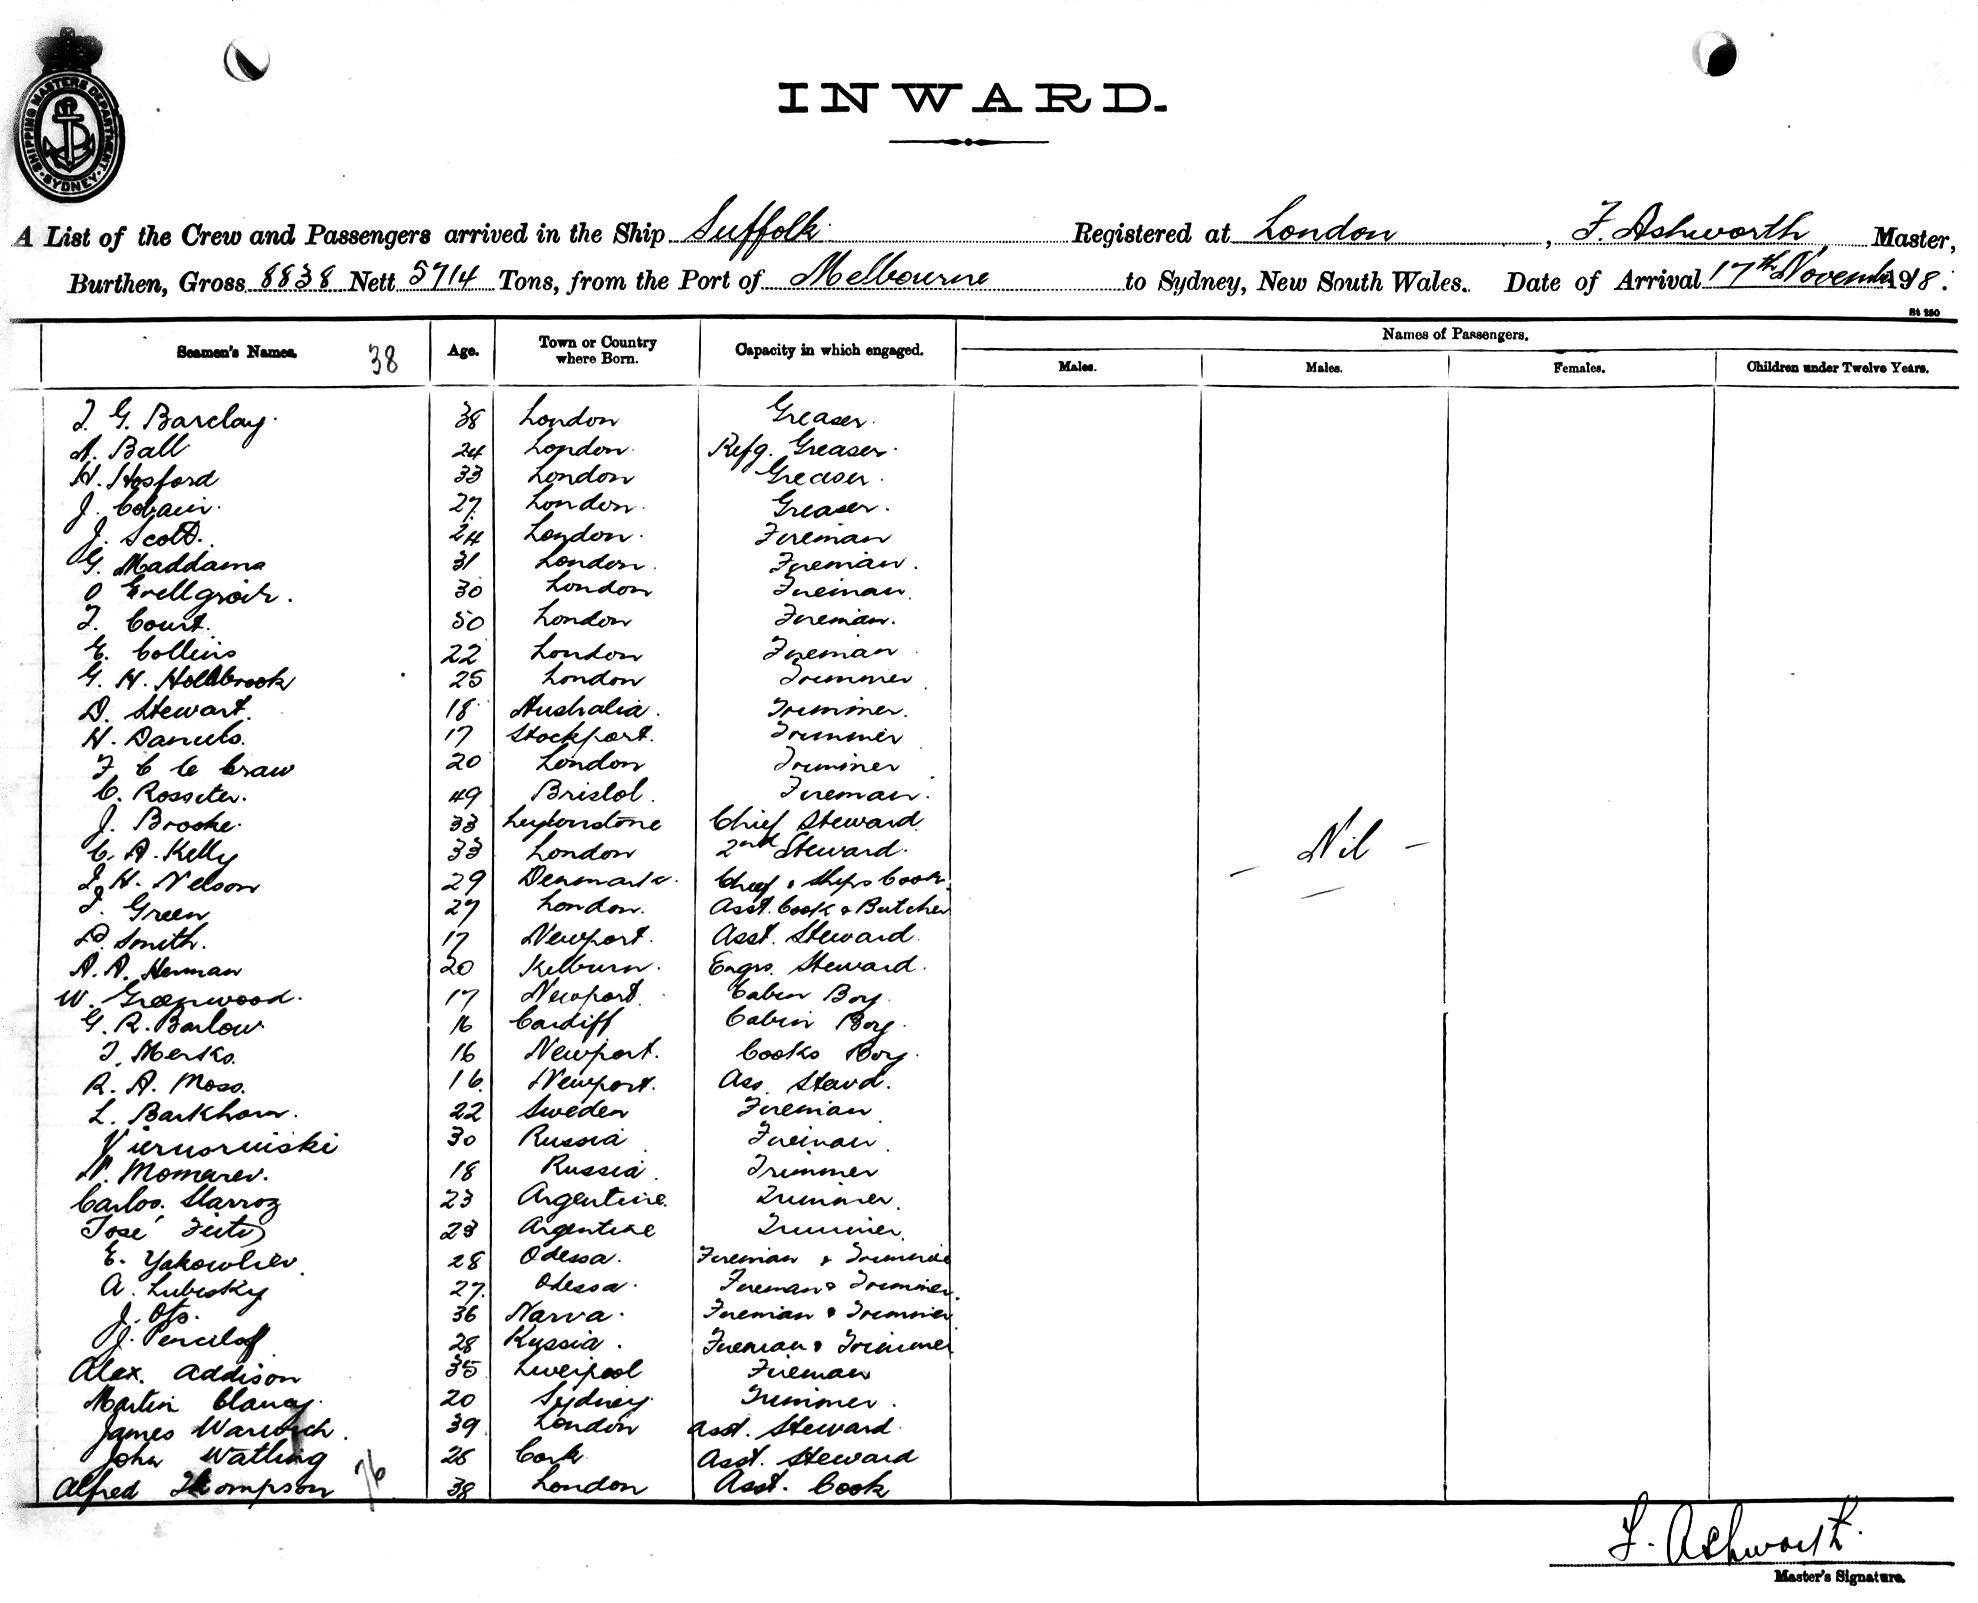 SHIPPING MASTERS DEPARTMENT
SYDNEY
INWARD.
A List of the Crew and Passengers arrived in the Ship Suffolk Registered at London, F. Ashworth Master,
Burthen, Gross 8838 Nett 5714 Tons, from the Port of Melbourne to Sydney, New South Wales. Date of Arrival 17th November 1918.
St 250
Seamen's Names. 38 Age. Town or Country where Born. Capacity in which engaged. Names of Passengers.
Males. Males. Females. Children under Twelve Years.
G. Barclay. 38 London Greaser.
A. Ball 24 London. Refg. Greaser.
H. Hosford 33 London Greaser.
J. Cobain. 27. London. Greaser.
J. Scott. 24 London. Fireman
G. Maddams 31 London. Fireman.
O 30 London Fireman.
Court. 50 London Fireman.
E. Collins 22 London Fireman
G. H. Hollbrook 25 London Trimmer
D. Stewart. 18 Australia. Trimmer.
H. Daniels. 17 Stockport. Trimmer
20 London Trimmer
C. Rosseter. 49 Bristol. Fireman.
J. Brooke. 33 Leytonstone Chief Steward
C. A. Kelly 33 London 2nd Steward.
H. Nelson 29 Denmark. Chief & Ships Cook.
Green 27 London. Asst. Cook & Butcher
D. Smith. 17 Newport. Asst. Steward.
A. A. Herman 20 Kilburn. Engrs. Steward.
W. Greenwood. 17 Newport. Cabin Boy.
G. R. Barlow 16 Cardiff Cabin Boy.
Merks. 16 Newport. Cooks Boy.
R. A. Moss. 16. Newport. Ass. Stewd.
L. Barkhorn. 22 Sweden Fireman
30 Russia Fireman.
N. Momarev. 18 Russia Trimmer
Carlos 23 Argentine. Trimmer.
José 23 Argentine Trimmer.
E. Yakowliev 28 Odessa. Fireman & Trimmer
A. Lubisky 27. Odessa. Fireman & Trimmer.
J. Ots. 36 Narva. Fireman & Trimmer
J. 28 Russia. Fireman & Trimmer
Alex. Addison 35 Liverpool Fireman
Martin Clancy. 20 Sydney Trimmer.
James Warwick. 39 London Asst. Steward
John Watling 25 Cork Asst. Steward
Alfred Thompson 76 38 London Asst. Cook
- Nil -
F. Ashworth.
Master's Signature.